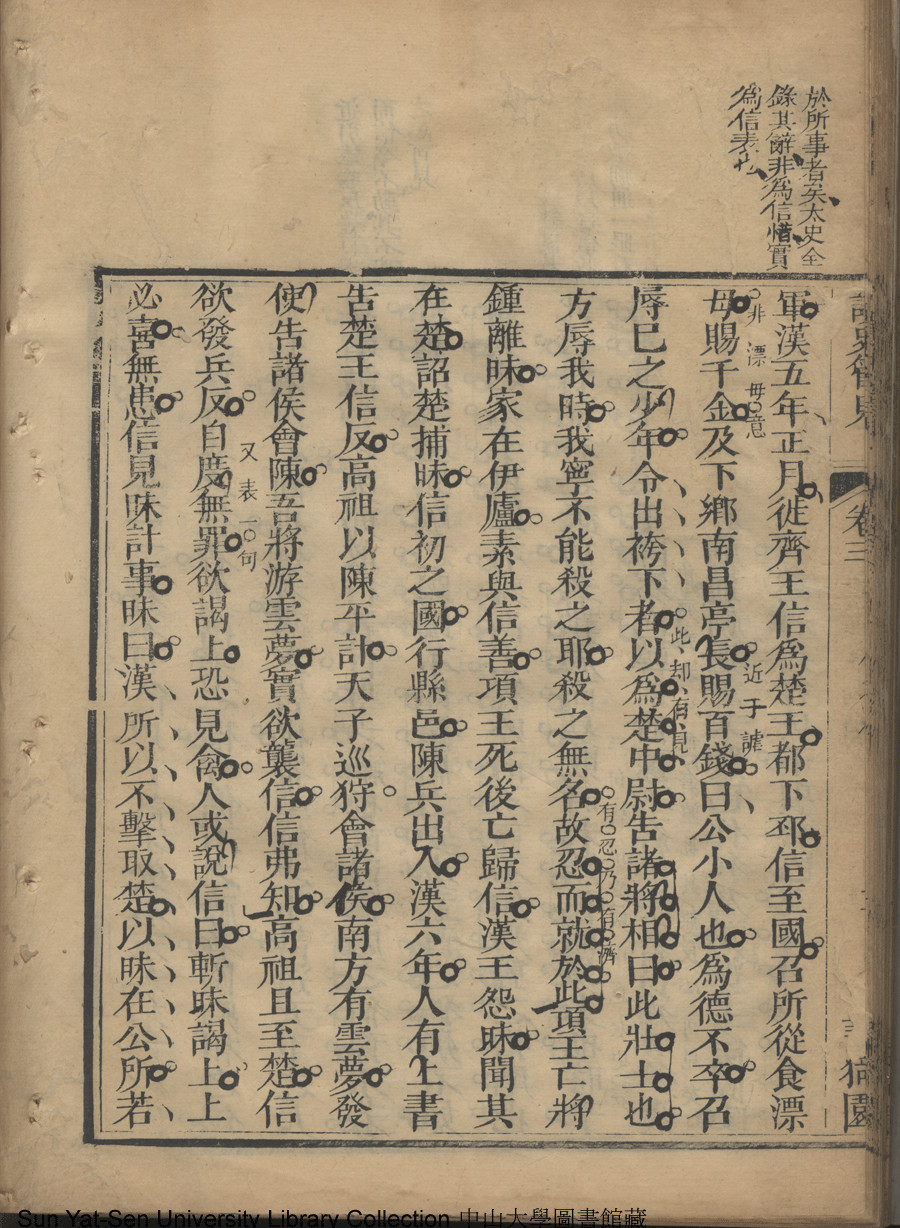 於所事者矣太史全
錄其辭非為信惜實
為信表也
卷三
軍漢五年正月徙齊王信爲楚王都下邳信至國召所從食漂
非漂母意
母賜千金及下鄉南昌亭長賜百錢曰公小人也爲德不卒召
近于謔
辱已之少年令出袴下者以爲楚中尉告諸將相曰此壯士也
此却有見
方辱我時我寧不能殺之耶殺之無名故忍而就於此項王亡將
有忍乃有濟
鍾離昧家在伊廬素與信善項王死後亡歸信漢王怨昧聞其
在楚詔楚捕昧信初之國行縣邑陳兵出入漢六年人有上書
告楚王信反高祖以陳平計天子巡狩會諸侯南方有雲夢發
使告諸侯會陳吾將游雲夢實欲襲信信弗知高祖且至楚信
又表一句
欲發兵反自度無罪欲謁上恐見禽人或說信曰斬昧謁上上
必喜無患信見昧計事昧曰漢所以不擊取楚以昧在公所若
Sun Yat-Sen University Library Collection 中山大學圖書館藏